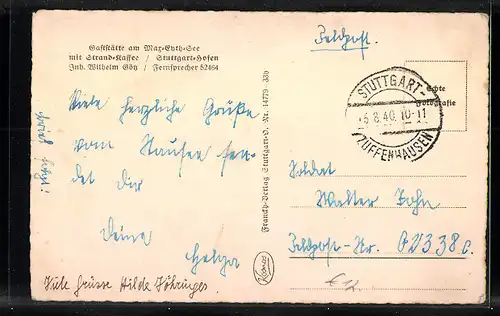 Gaststätte am Max-Eyth-See
mit Strand-Kaffee / Stuttgart-Hofen
Inh. Wilhelm Götz / Fernsprecher 52464
Viele herzliche Grüße
vom Stausee sen-
det dir
deine
Helga
Viele Grüsse Hilde
Franckh-Verlag Stuttgart-O. Nr. 14779-33b
Kosmos
Feldpost.
STUTTGART-
-5.8.40.10-11
ZUFFENHAUSEN
Echte
Fotografie
Soldat
Walter John
Feldpost-Nr. 02338 c.
€12.